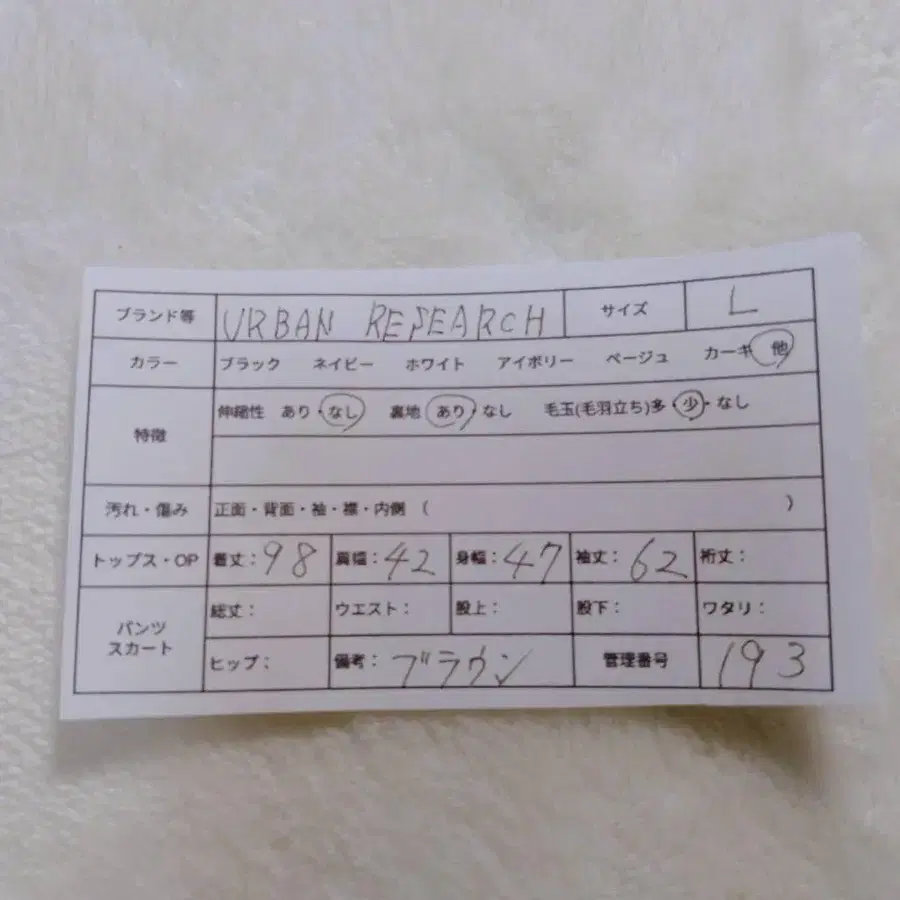 ブランド等 URBAN RESEARCH サイズ L
カラー ブラック ネイビー ホワイト アイボリー ベージュ カーキ 他
特徴 伸縮性 あり・なし 裏地 あり・なし 毛玉(毛羽立ち)多・少・なし
汚れ・傷み 正面・背面・袖・襟・内側 ( )
トップス・OP 着丈:98 肩幅:42 身幅:47 袖丈:62 裄丈:
パンツ スカート 総丈: ウエスト: 股上: 股下: ワタリ:
ヒップ: 備考:ブラウン 管理番号 193